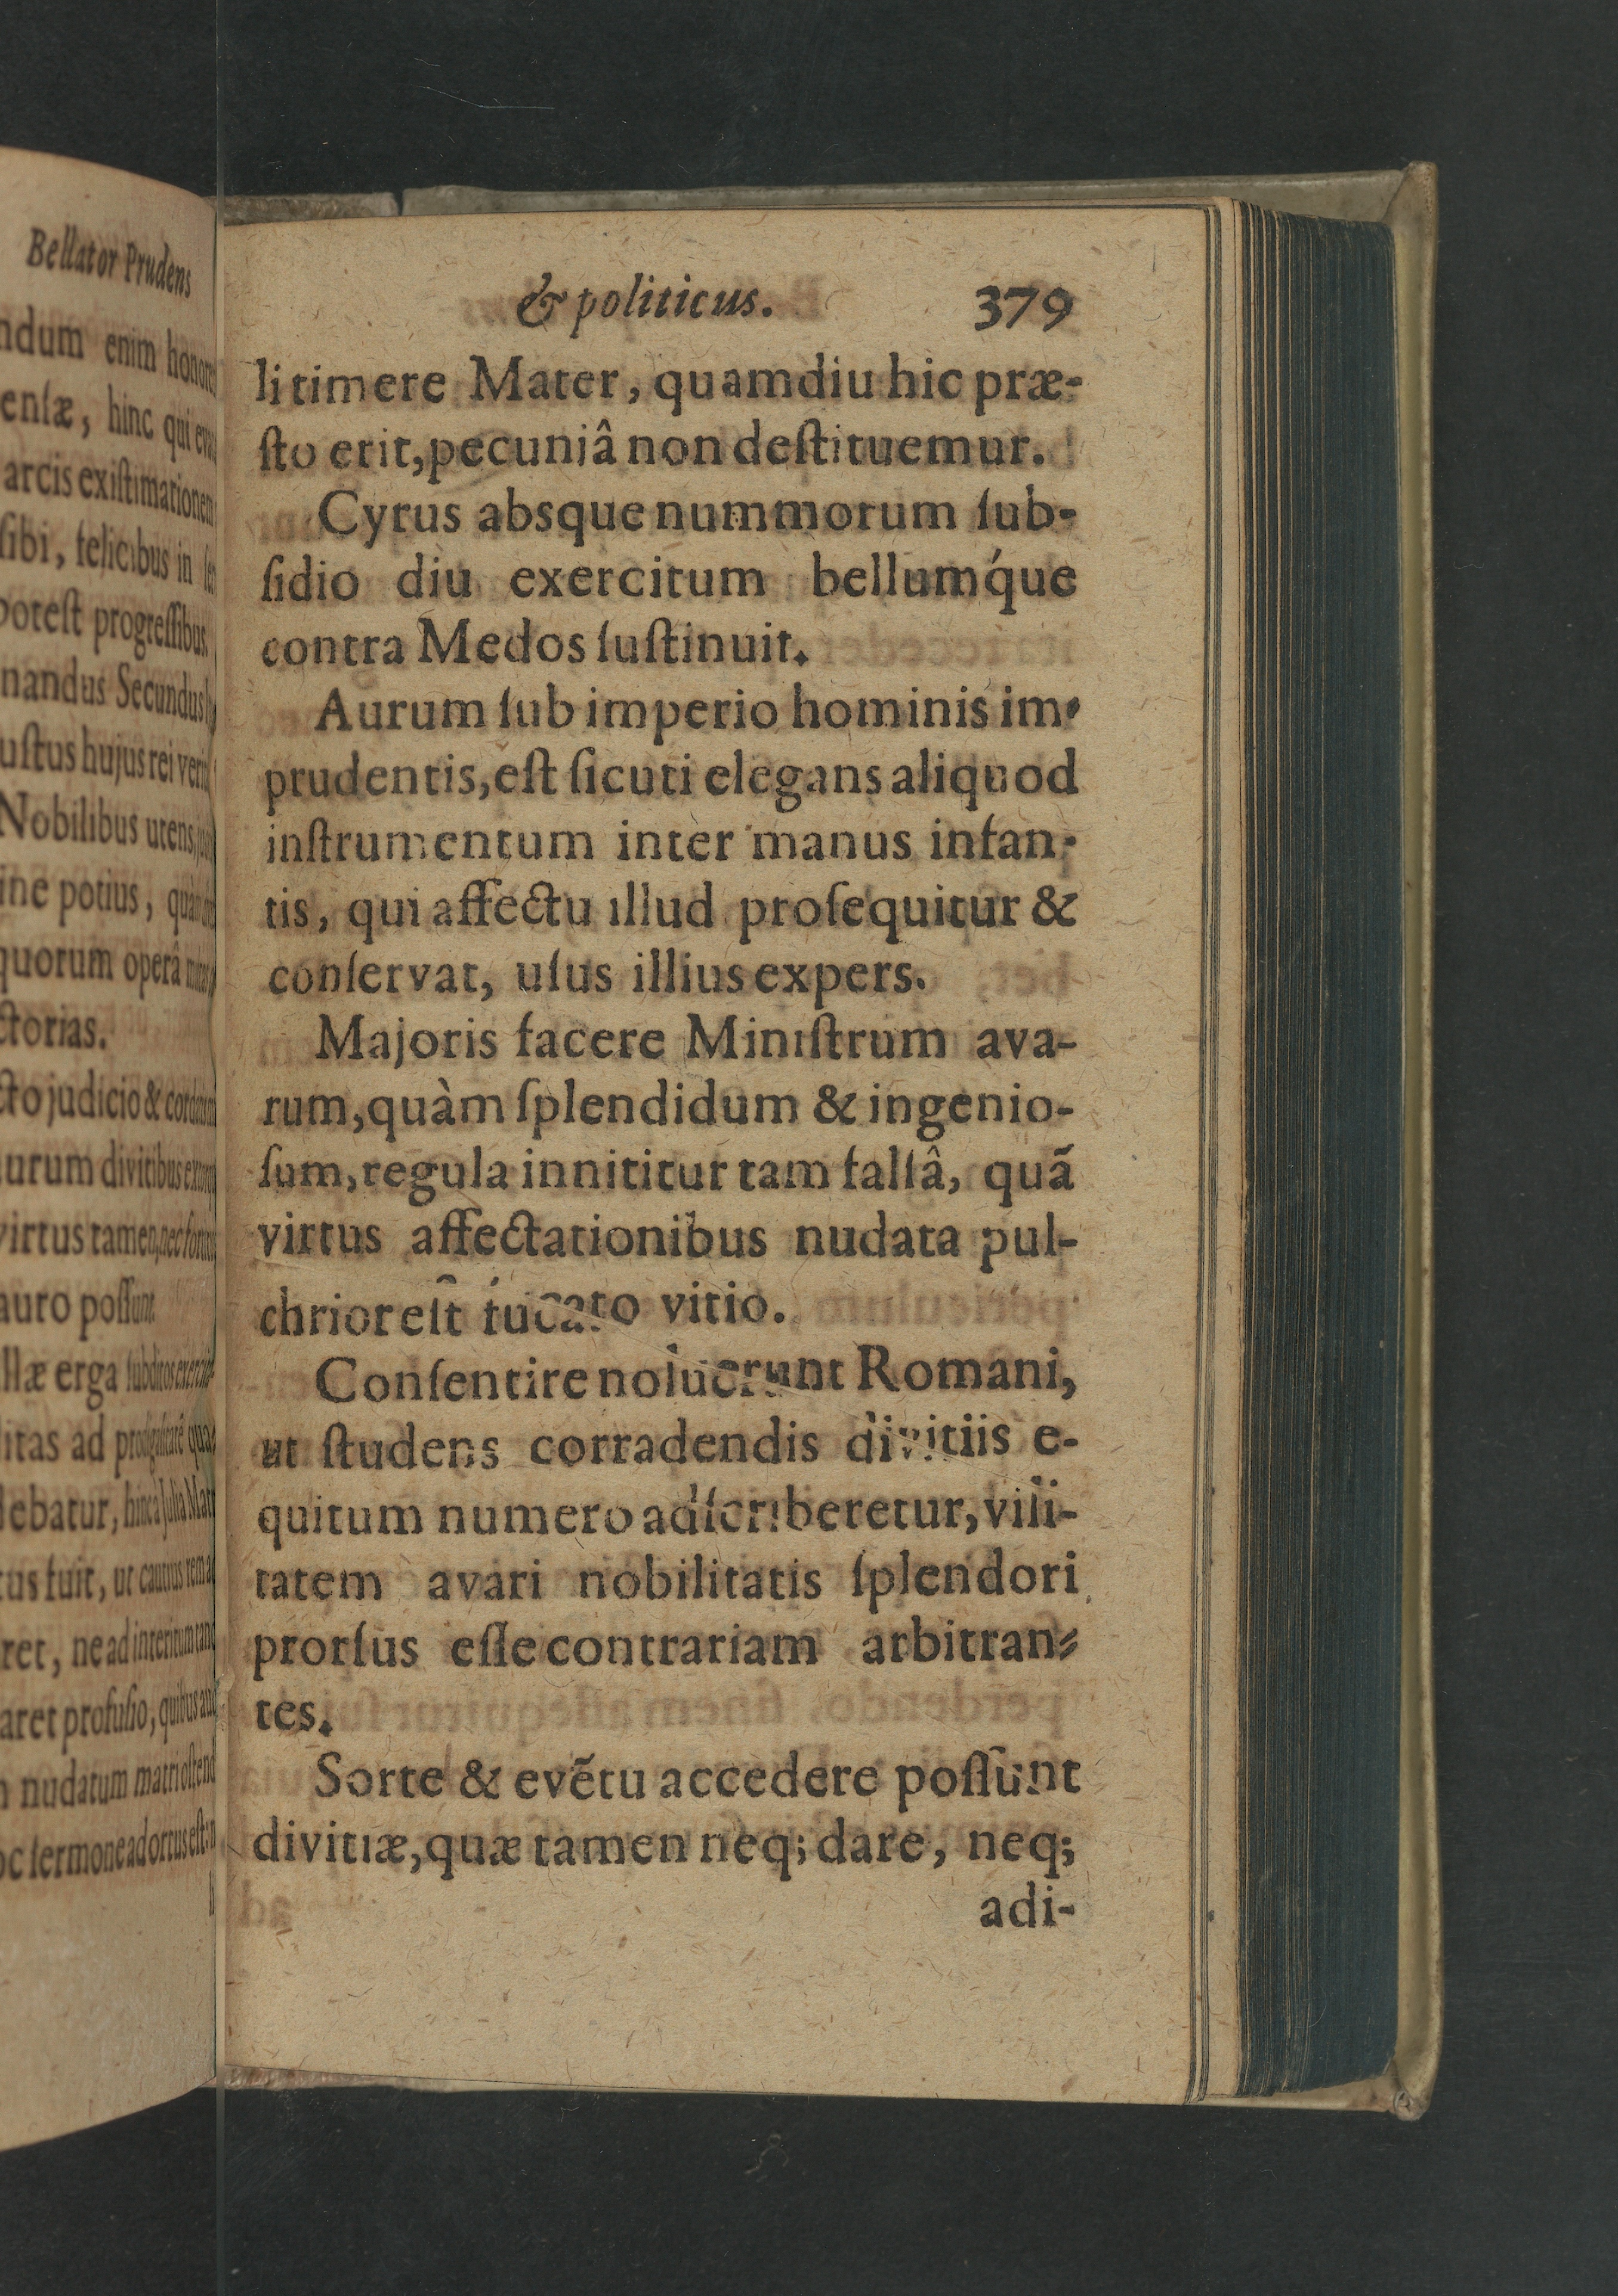 Bellator Prudens
ndum enim
enſæ, hinc qui
arcis exiſtimationem
ſibi, felicibus in
poteſt progreſſibus.
nandus Secundus
uſtus hujus rei
Nobilibus utens,
ine potius,
quorum operâ
ctorias.
cto judicio &
urum divitibus
virtus tamen, nec
auro poſſunt.
llæ erga ſubditos
litas ad
lebatur, hinc a Julia
tus fuit, ut cautius
ret, ne ad interitum
aret profuſio, quibus
nudatum matri
oc ſermone adortus eſt:
& politicus. 379
li timere Mater, quamdiu hic præ-
ſto erit, pecuniâ non deſtituemur.
Cyrus absque nummorum ſub-
ſidio diu exercitum bellumq́ue
contra Medos ſuſtinuit.
Aurum ſub imperio hominis im-
prudentis, eſt ſicuti elegans aliquod
inſtrumentum inter manus infan-
tis, qui affectu illud proſequitur &
conſervat, uſus illius expers.
Majoris facere Miniſtrum ava-
rum, quàm ſplendidum & ingenio-
ſum, regula innititur tam falſâ, quã
virtus affectationibus nudata pul-
chrior eſt fucato vitio.
Conſentire noluerunt Romani,
ut ſtudens corradendis divitiis e-
quitum numero adſcriberetur, vili-
tatem avari nobilitatis ſplendori
prorſus eſſe contrariam arbitran-
tes.
Sorte & evẽtu accedere poſſunt
divitiæ, quæ tamen neq; dare, neq;
adi-